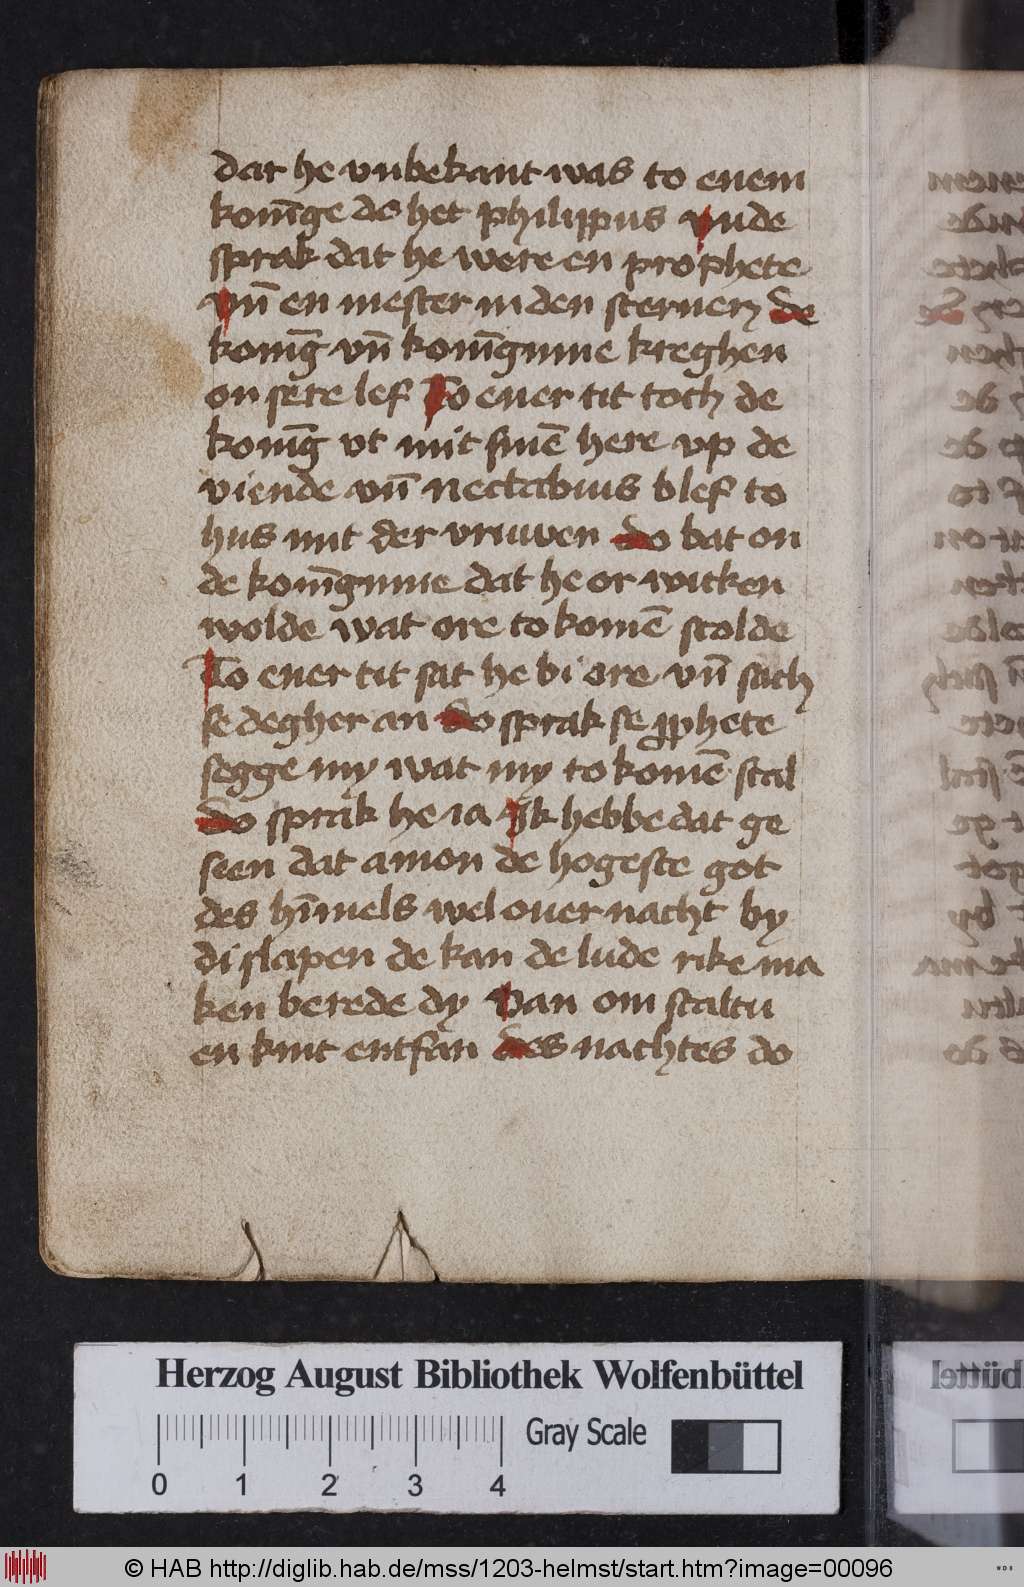 dar he vnbekant was to enem
konīge de het philippus vnde
sprak dat he were en prophete
vn̄ en mester in den sternen de
konīg vn̄ konīginne kreghen
on sere lef To ener tit toch de
konīg vt mit sinē here vp de
viende vn̄ nectabius blef to
hus mit der vruwen do bat on
de konīginne dat he or wicken
wolde wat ore to komē scolde
To ener tit sat he bi ore vn̄ sach
se degher an do sprak se ꝓphete
segge my wat my to komē scal
do sprak he ia Ik hebbe dat ge
seen dat amon de hogeste got
des hīmels wel ouer nacht by
di slapen de kan de lude rike ma
ken berede dy Van om scaltu
en kint entfan des nachtes do
Herzog August Bibliothek Wolfenbüttel
Gray Scale
0 1 2 3 4
© HAB http://diglib.hab.de/mss/1203-helmst/start.htm?image=00096